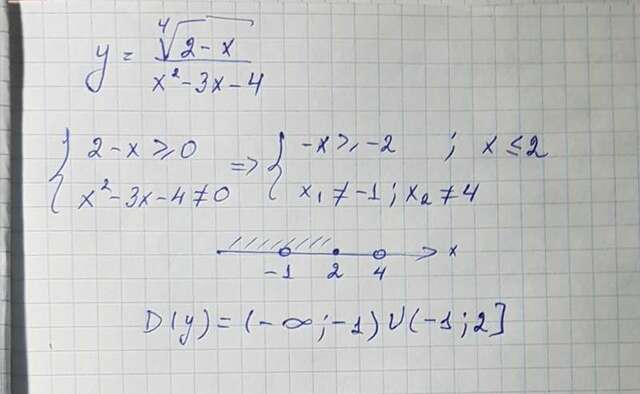 y = ⁴√(2-x) / (x²-3x-4)
{ 2-x ⩾ 0 => { -x ⩾ -2 ; x ≤ 2
{ x²-3x-4 ≠ 0 { x₁ ≠ -1 ; x₂ ≠ 4
-1 2 4 x
D(y) = (-∞; -1) ∪ (-1; 2]